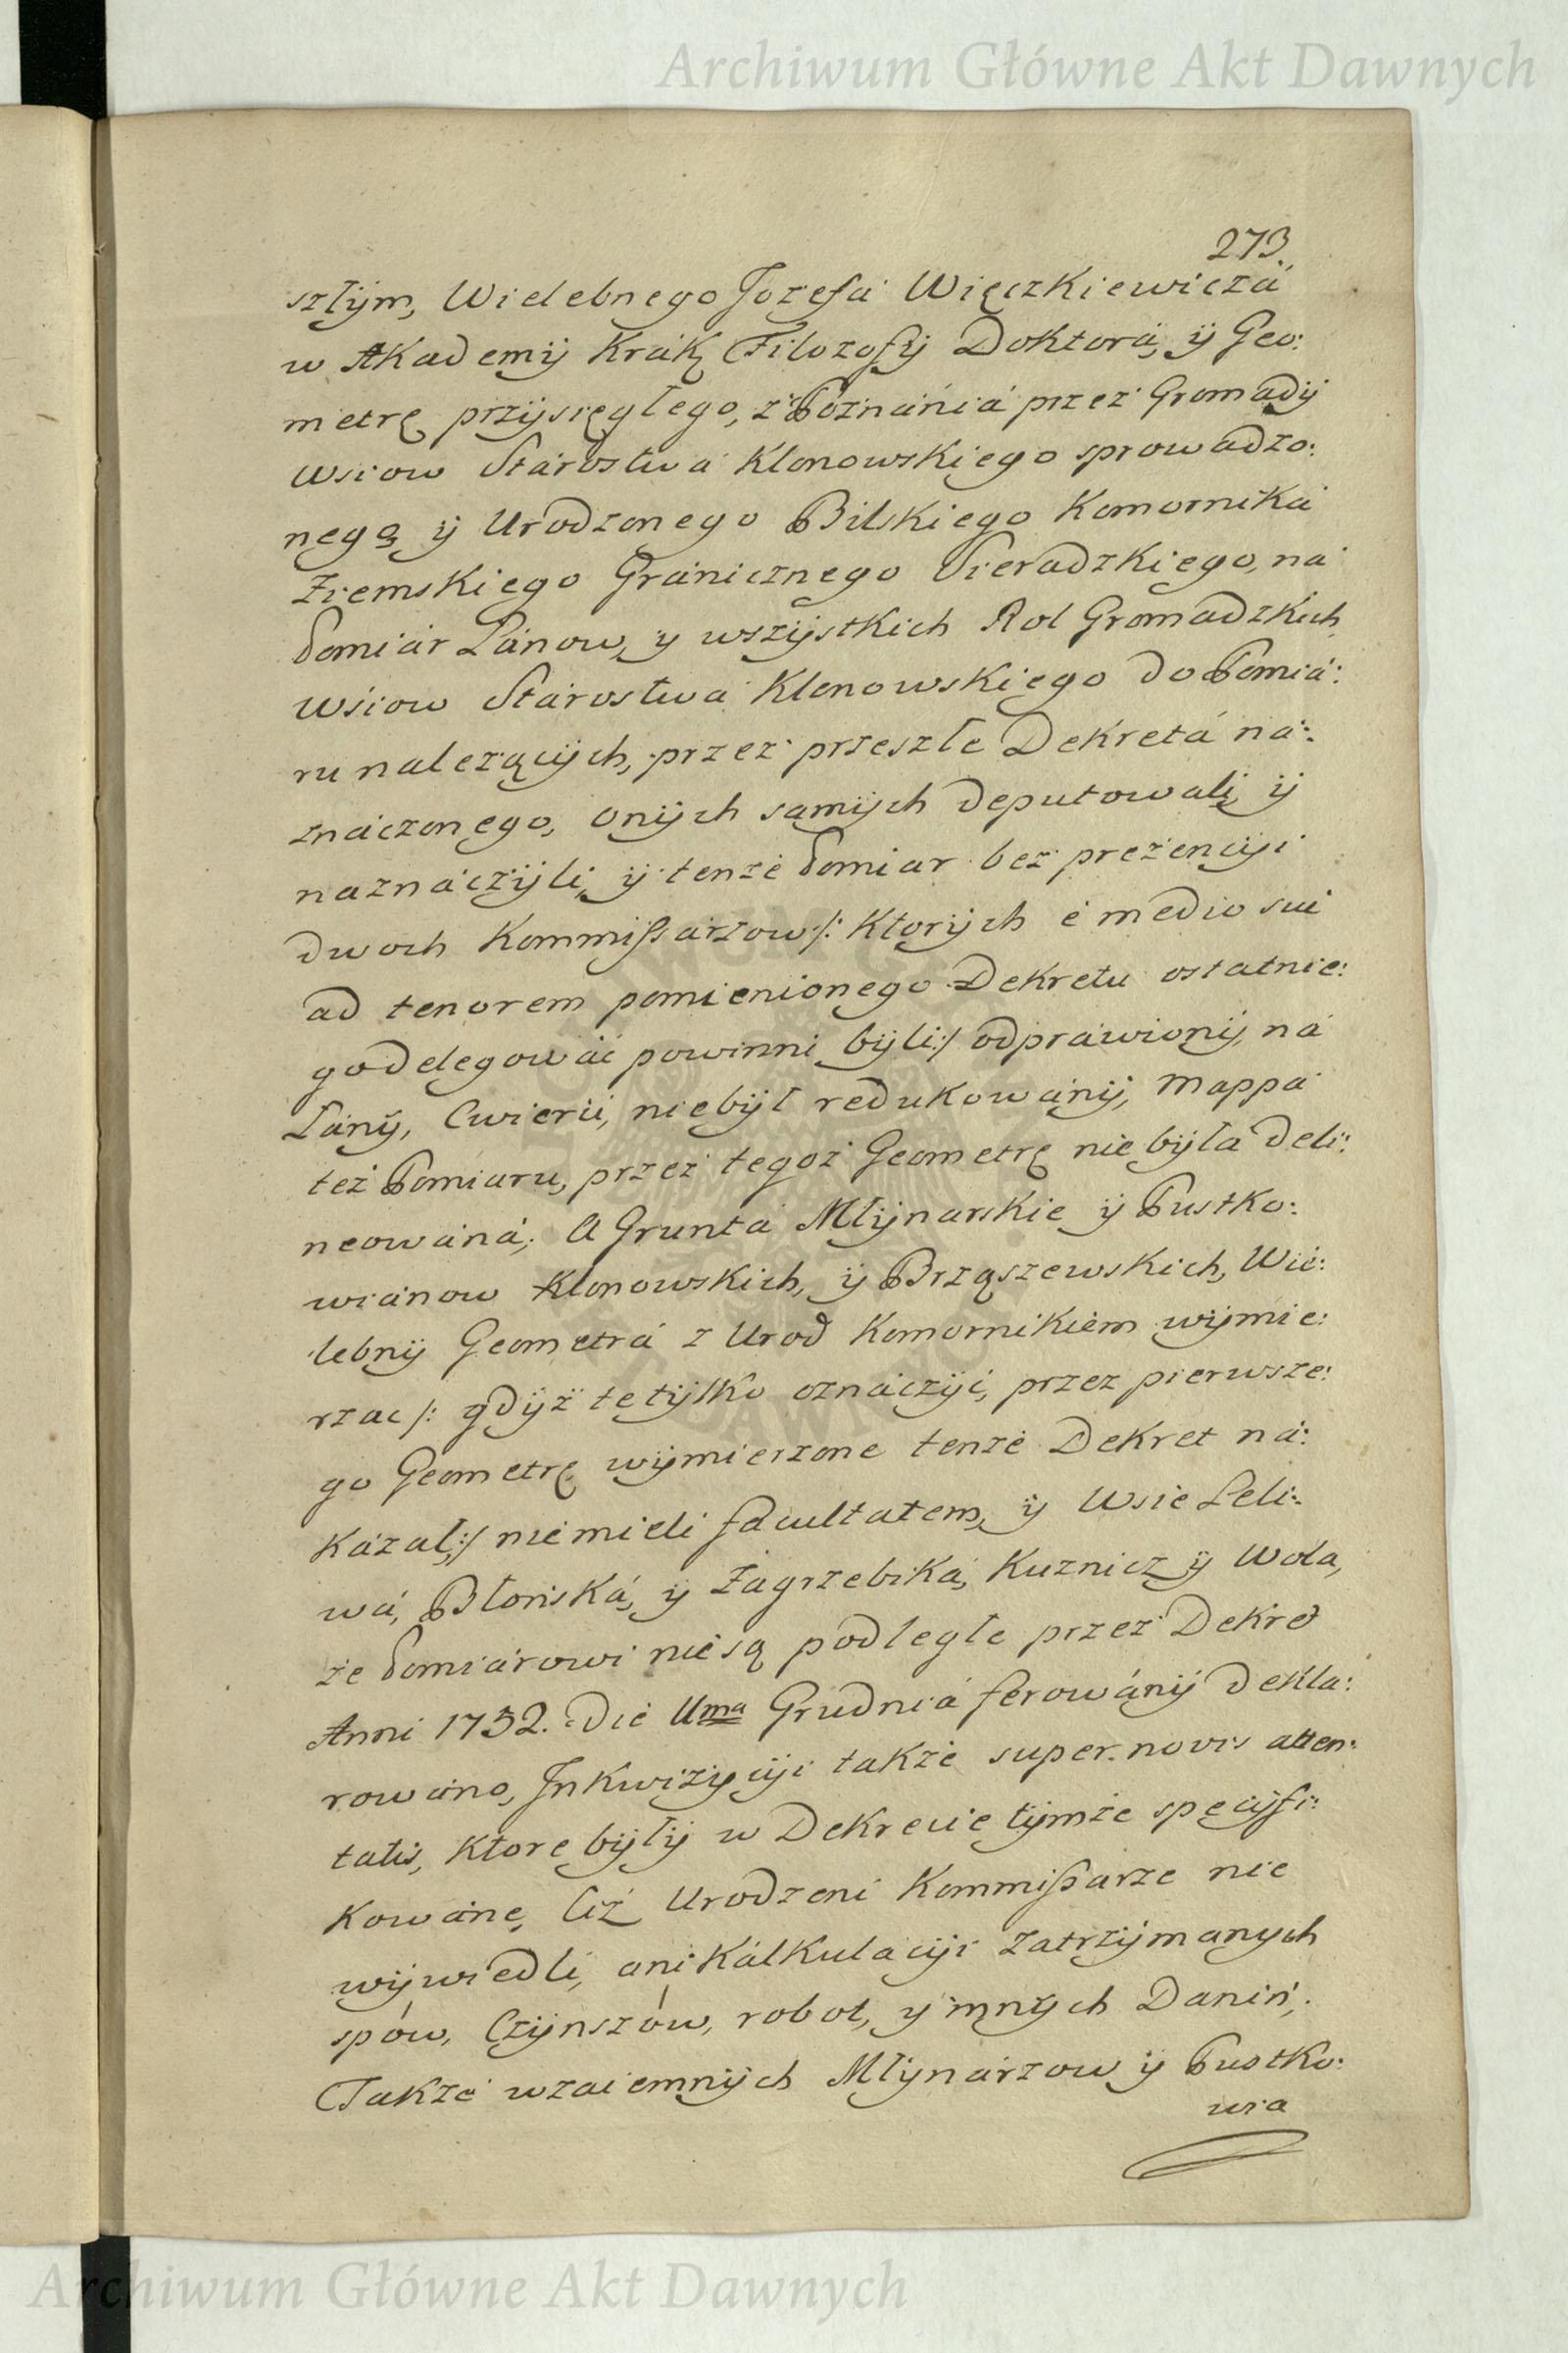 Archiwum Główne Akt Dawnych
273.
szłÿm, Wielebnego Jozefa Więczkiewiczá
w Akademÿ Krák: Filozofÿ Doktorá, ÿ Geo:
metrę przÿsięgłego, z Poznániá przez Gromadÿ
Wsiow Stárostwá Klonowskiego sprowadzo:
nego, ÿ Urodzonego Bilskiego Komorniká
Ziemskiego Gránicznego Sieradzkiego, ná
Pomiár Łánow, y wszÿstkich Rol Gromadzkich
Wsiow Stárostwá Klonowskiego do Pomiá:
ru nalezącÿch, przez przeszłe Dekretá ná:
znáczonego, onÿch samÿch deputowali, ÿ
naznáczÿli, ÿ tenże Pomiar bez prezencÿi
dwoch Kommißárzow /: Ktorÿch é medio sui
ad tenorem pomienionego Dekretu ostatnie:
go delegowáć powinni bÿli :/ odpráwionÿ, ná
Łánÿ, Cwierci, nie bÿł redukowánÿ, Mappá
też Pomiaru, przez tegoż Geometrę nie bÿła deli:
neowáná; A Gruntá Młÿnarskie ÿ Pustko:
wiánow Klonowskich, ÿ Brząszewskich, Wie:
lebnÿ Geometrá z Urod Komornikiem wÿmie:
rzac /: gdÿż te tÿlko oznáczÿć, przez pierwsze:
go Geometrę wÿmierzone tenże Dekret ná:
kázał :/ nie mieli facultatem, ÿ Wsie Leli:
wá, Błońská, ÿ Zagrzebská, Kuznicz ÿ Wola,
że Pomiárowi nie są podległe przez Dekret
Anni 1752. Die 11ma Grudniá ferowánÿ dekla:
rowáno, Jnkwizycÿi także super novis atten:
tatis, ktore bÿłÿ w Dekrecie tÿmże specÿfi:
kowáne, Ciż Urodzeni Kommißarze nie
wÿwiedli, ani Kálkulacÿi zatrzÿmanych
spów, Czÿnszów, robot, ÿ innych Daniń,
Także wzaiemnÿch Młÿnárzow ÿ Pustko:
wia
Archiwum Główne Akt Dawnych